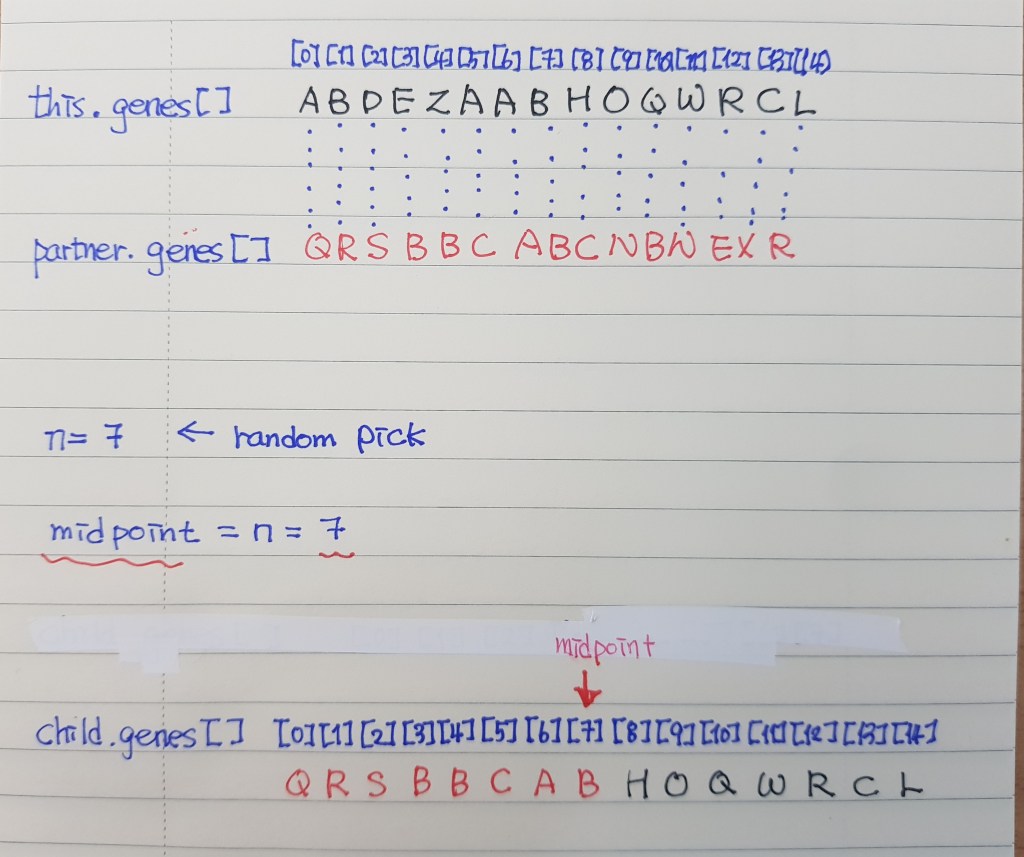 [0] [1] [2] [3] [4] [5] [6] [7] [8] [9] [10] [11] [12] [13] [14]
this.genes[] A B D E Z A A B H O Q W R C L
partner.genes[] Q R S B B C A B C N B W E X R
n = 7 ← random pick
midpoint = n = 7
midpoint
child.genes[] [0] [1] [2] [3] [4] [5] [6] [7] [8] [9] [10] [11] [12] [13] [14]
Q R S B B C A B H O Q W R C L